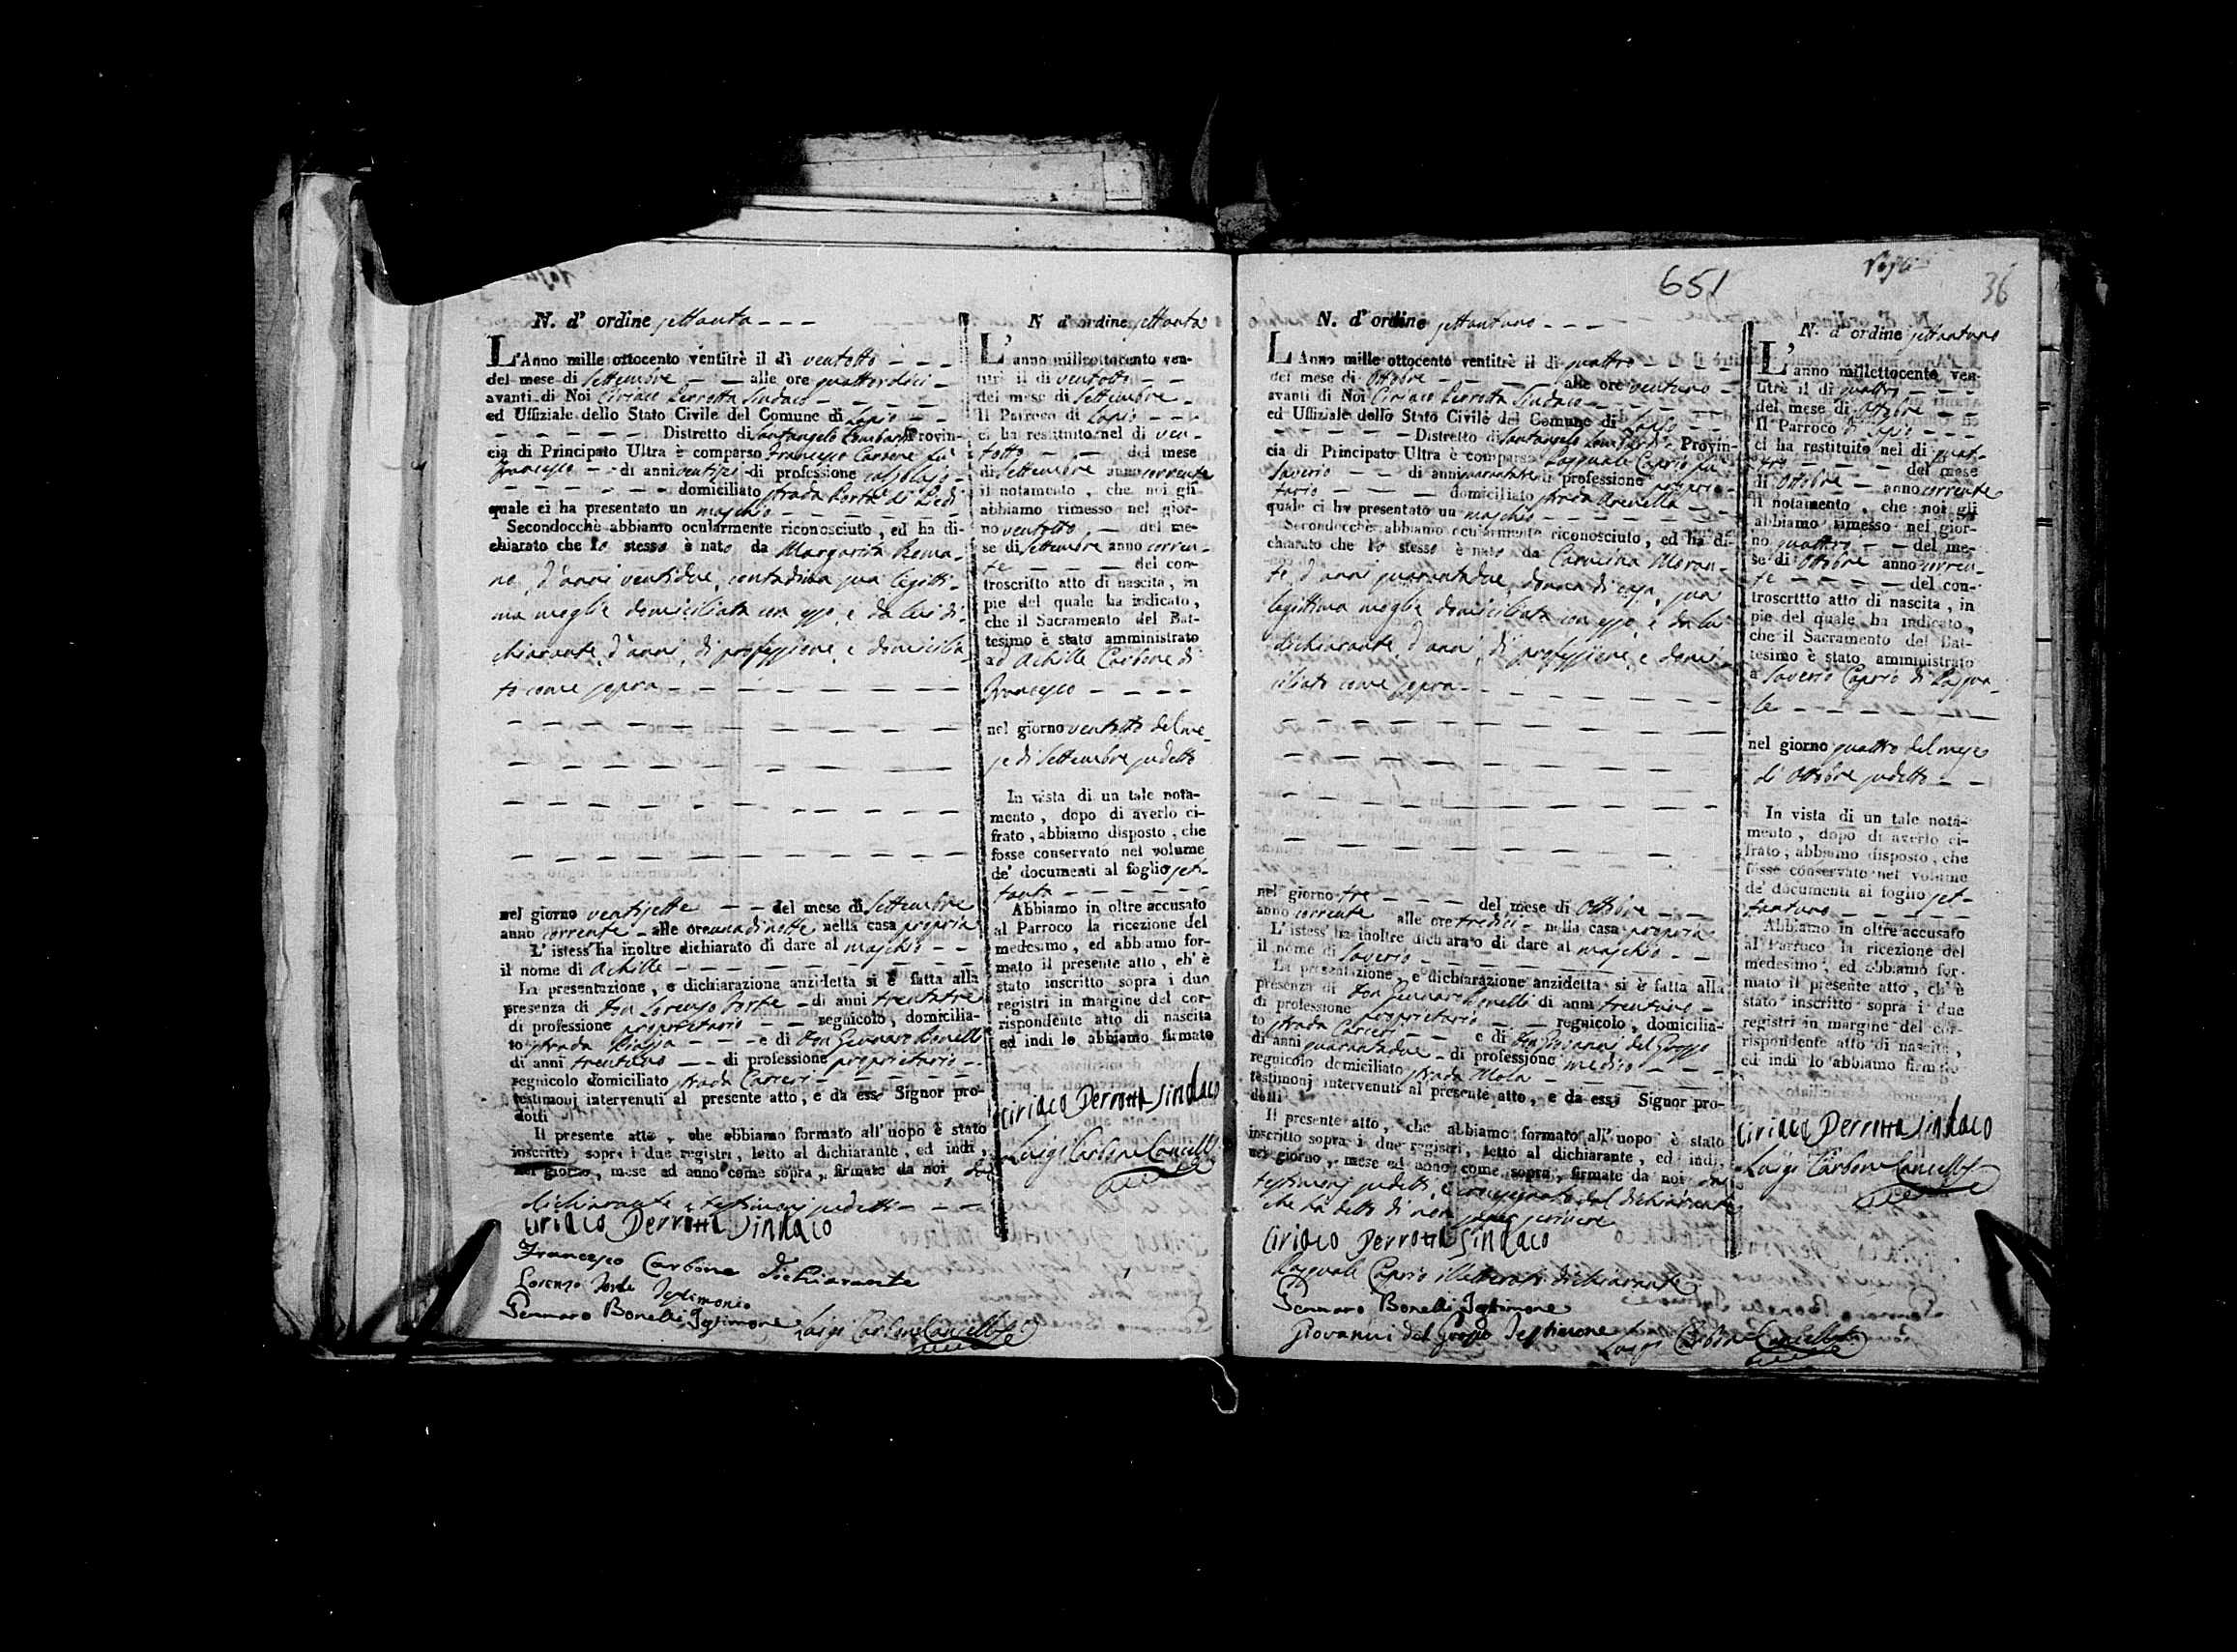 N. d' ordine settanta
L'Anno mille ottocento ventitrè il di ventotto
del mese di Settembre alle ore quattordici
avanti di Noi Ciriaco Perrotta Sindaco
ed Uffiziale dello Stato Civile del Comune di Lapio
Distretto di Santangelo Lombardi Provin-
cia di Principato Ultra è comparso Francesco Carbone fu
Francesco di anni ventisei di professione
domiciliato strada Porta il
quale ci ha presentato un maschio
Secondocchè abbiamo ocularmente riconosciuto, ed ha di-
chiarato che lo stesso è nato da Margarita Roma-
no, d'anni ventidue, contadina sua legitti-
ma moglie domiciliata con esso, e da lui di-
chiarante, d'anni, di professione, e domicilia-
to come sopra
nel giorno ventisette del mese di Settembre
anno corrente alle ore una di notte nella casa propria
L' istess' ha inoltre dichiarato di dare al maschio
il nome di Achille
La presentazione, e dichiarazione anzidetta si è fatta alla
presenza di Don Lorenzo Forte di anni trentatre
di professione proprietario regnicolo, domicilia-
to strada Piazza e di Don Gennaro Bonelli
di anni trentuno di professione proprietario
regnicolo domiciliato strada Carceri
testimonj intervenuti al presente atto, e da esso Signor pro-
dotti
Il presente atto, che abbiamo formato all' uopo è stato
inscritto sopra i due registri, letto al dichiarante, ed indi,
nel giorno, mese ad anno come sopra, firmato da noi, dal
dichiarante e testimonj sudetti
Ciriaco Perrotta Sindaco
Francesco Carbone dichiarante
Lorenzo Forte Testimonio
Gennaro Bonelli Testimone
Luigi Carbone Cancell.
N d' ordine settanta
L' anno millcottocento ven-
titrè il di ventotto
del mese di Settembre
Il Parroco di Lapio
ci ha restituito nel di ven-
totto del mese
di Settembre anno corrente
il notamento, che noi gli
abbiamo rimesso nel gior-
no ventotto del me-
se di Settembre anno corren-
te del con-
troscritto atto di nascita, in
pie del quale ha indicato,
che il Sacramento del Bat-
tesimo è stato amministrato
ad Achille Carbone di
Francesco
nel giorno ventotto del me-
se di Settembre sudetto
In vista di un tale nota-
mento, dopo di averlo ci-
frato, abbiamo disposto, che
fosse conservato nel volume
de' documenti al foglio set-
tanta
Abbiamo in oltre accusato
al Parroco la ricezione del
medesimo, ed abbiamo for-
mato il presente atto, ch' è
stato inscritto sopra i due
registri in margine del cor-
rispondente atto di nascita
ed indi lo abbiamo firmato
Ciriaco Perrotta Sindaco
Luigi Carbone Cancell.
651
36
N. d' ordine settantuno
L'Anno mille ottocento ventitrè il di quattro
del mese di Ottobre alle ore ventuno
avanti di Noi Ciriaco Perrotta Sindaco
ed Uffiziale dello Stato Civile del Comune di Lapio
Distretto di Santangelo Lombardi Provin-
cia di Principato Ultra è comparso Pasquale Caprio fu
Saverio di anni di professione proprie-
tario domiciliato strada
quale ci ha presentato un maschio
Secondocchè abbiamo ocularmente riconosciuto, ed ha di-
chiarato che lo stesso è nato da Carmina Moran-
te, d'anni quarantadue, donna di casa, sua
legittima moglie domiciliata con esso, e da lui
dichiarante, d'anni, di professione, e domi-
ciliato come sopra
nel giorno tre del mese di Ottobre
anno corrente alle ore tredici nella casa propria
L' istess' ha inoltre dichiarato di dare al maschio
il nome di Saverio
La presentazione, e dichiarazione anzidetta si è fatta alla
presenza di Don Gennaro Bonelli di anni trentuno
di professione proprietario regnicolo, domicilia-
to strada Carceri e di Don Giovanni del Grosso
di anni quarantadue di professione medico
regnicolo domiciliato strada Mola
testimonj intervenuti al presente atto, e da esso Signor pro-
dotti
Il presente atto, che abbiamo formato all' uopo è stato
inscritto sopra i due registri, letto al dichiarante, ed indi,
nel giorno, mese ed anno come sopra, firmato da noi dai
testimonj sudetti, e dal dichiarante
che ha detto di non saper scrivere
Ciriaco Perrotta Sindaco
Pasquale Caprio illetterato dichiarante
Gennaro Bonelli Testimone
Giovanni del Grosso Testimone
Luigi Carbone Cancell.
N. d' ordine settantuno
L' anno millettocento ven-
titrè il di quattro
del mese di Ottobre
Il Parroco di Lapio
ci ha restituito nel di quat-
tro del mese
di Ottobre anno corrente
il notamento, che noi gli
abbiamo rimesso nel gior-
no quattro del me-
se di Ottobre anno corren-
te del con-
troscrttto atto di nascita, in
pie del quale ha indicato,
che il Sacramento del Bat-
tesimo è stato amministrato
a Saverio Caprio di Pasqua-
le
nel giorno quattro del mese
di Ottobre sudetto
In vista di un tale nota-
mento, dopo di averlo ci-
frato, abbiamo disposto, che
fosse conservato nel volume
de' documenti al foglio set-
tantuno
Abbiamo in oltre accusato
al Parroco la ricezione del
medesimo, ed abbiamo for-
mato il presente atto, ch' è
stato inscritto sopra i due
registri in margine del cor-
rispondente atto di nascita,
ed indi lo abbiamo firmato
Ciriaco Perrotta Sindaco
Luigi Carbone Cancell.